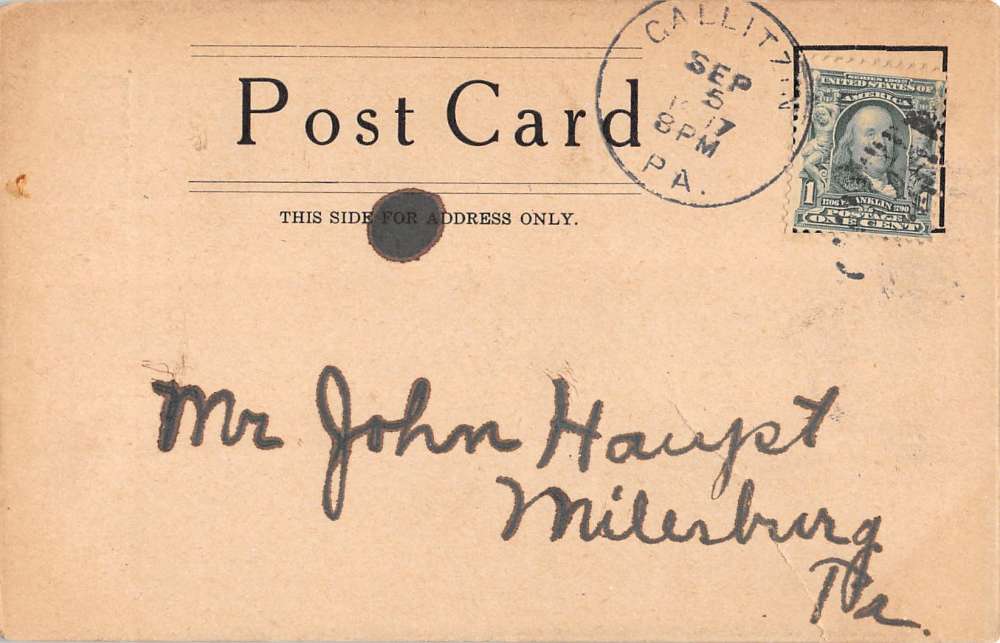 Post Card
THIS SIDE FOR ADDRESS ONLY.
GALLITZIN
SEP
5
8 PM
PA.
SERIES 1902
UNITED STATES OF
AMERICA
1
1706 FRANKLIN 1790
POSTAGE
ONE CENT
Mr John Haupt
Milesburg
Pa.